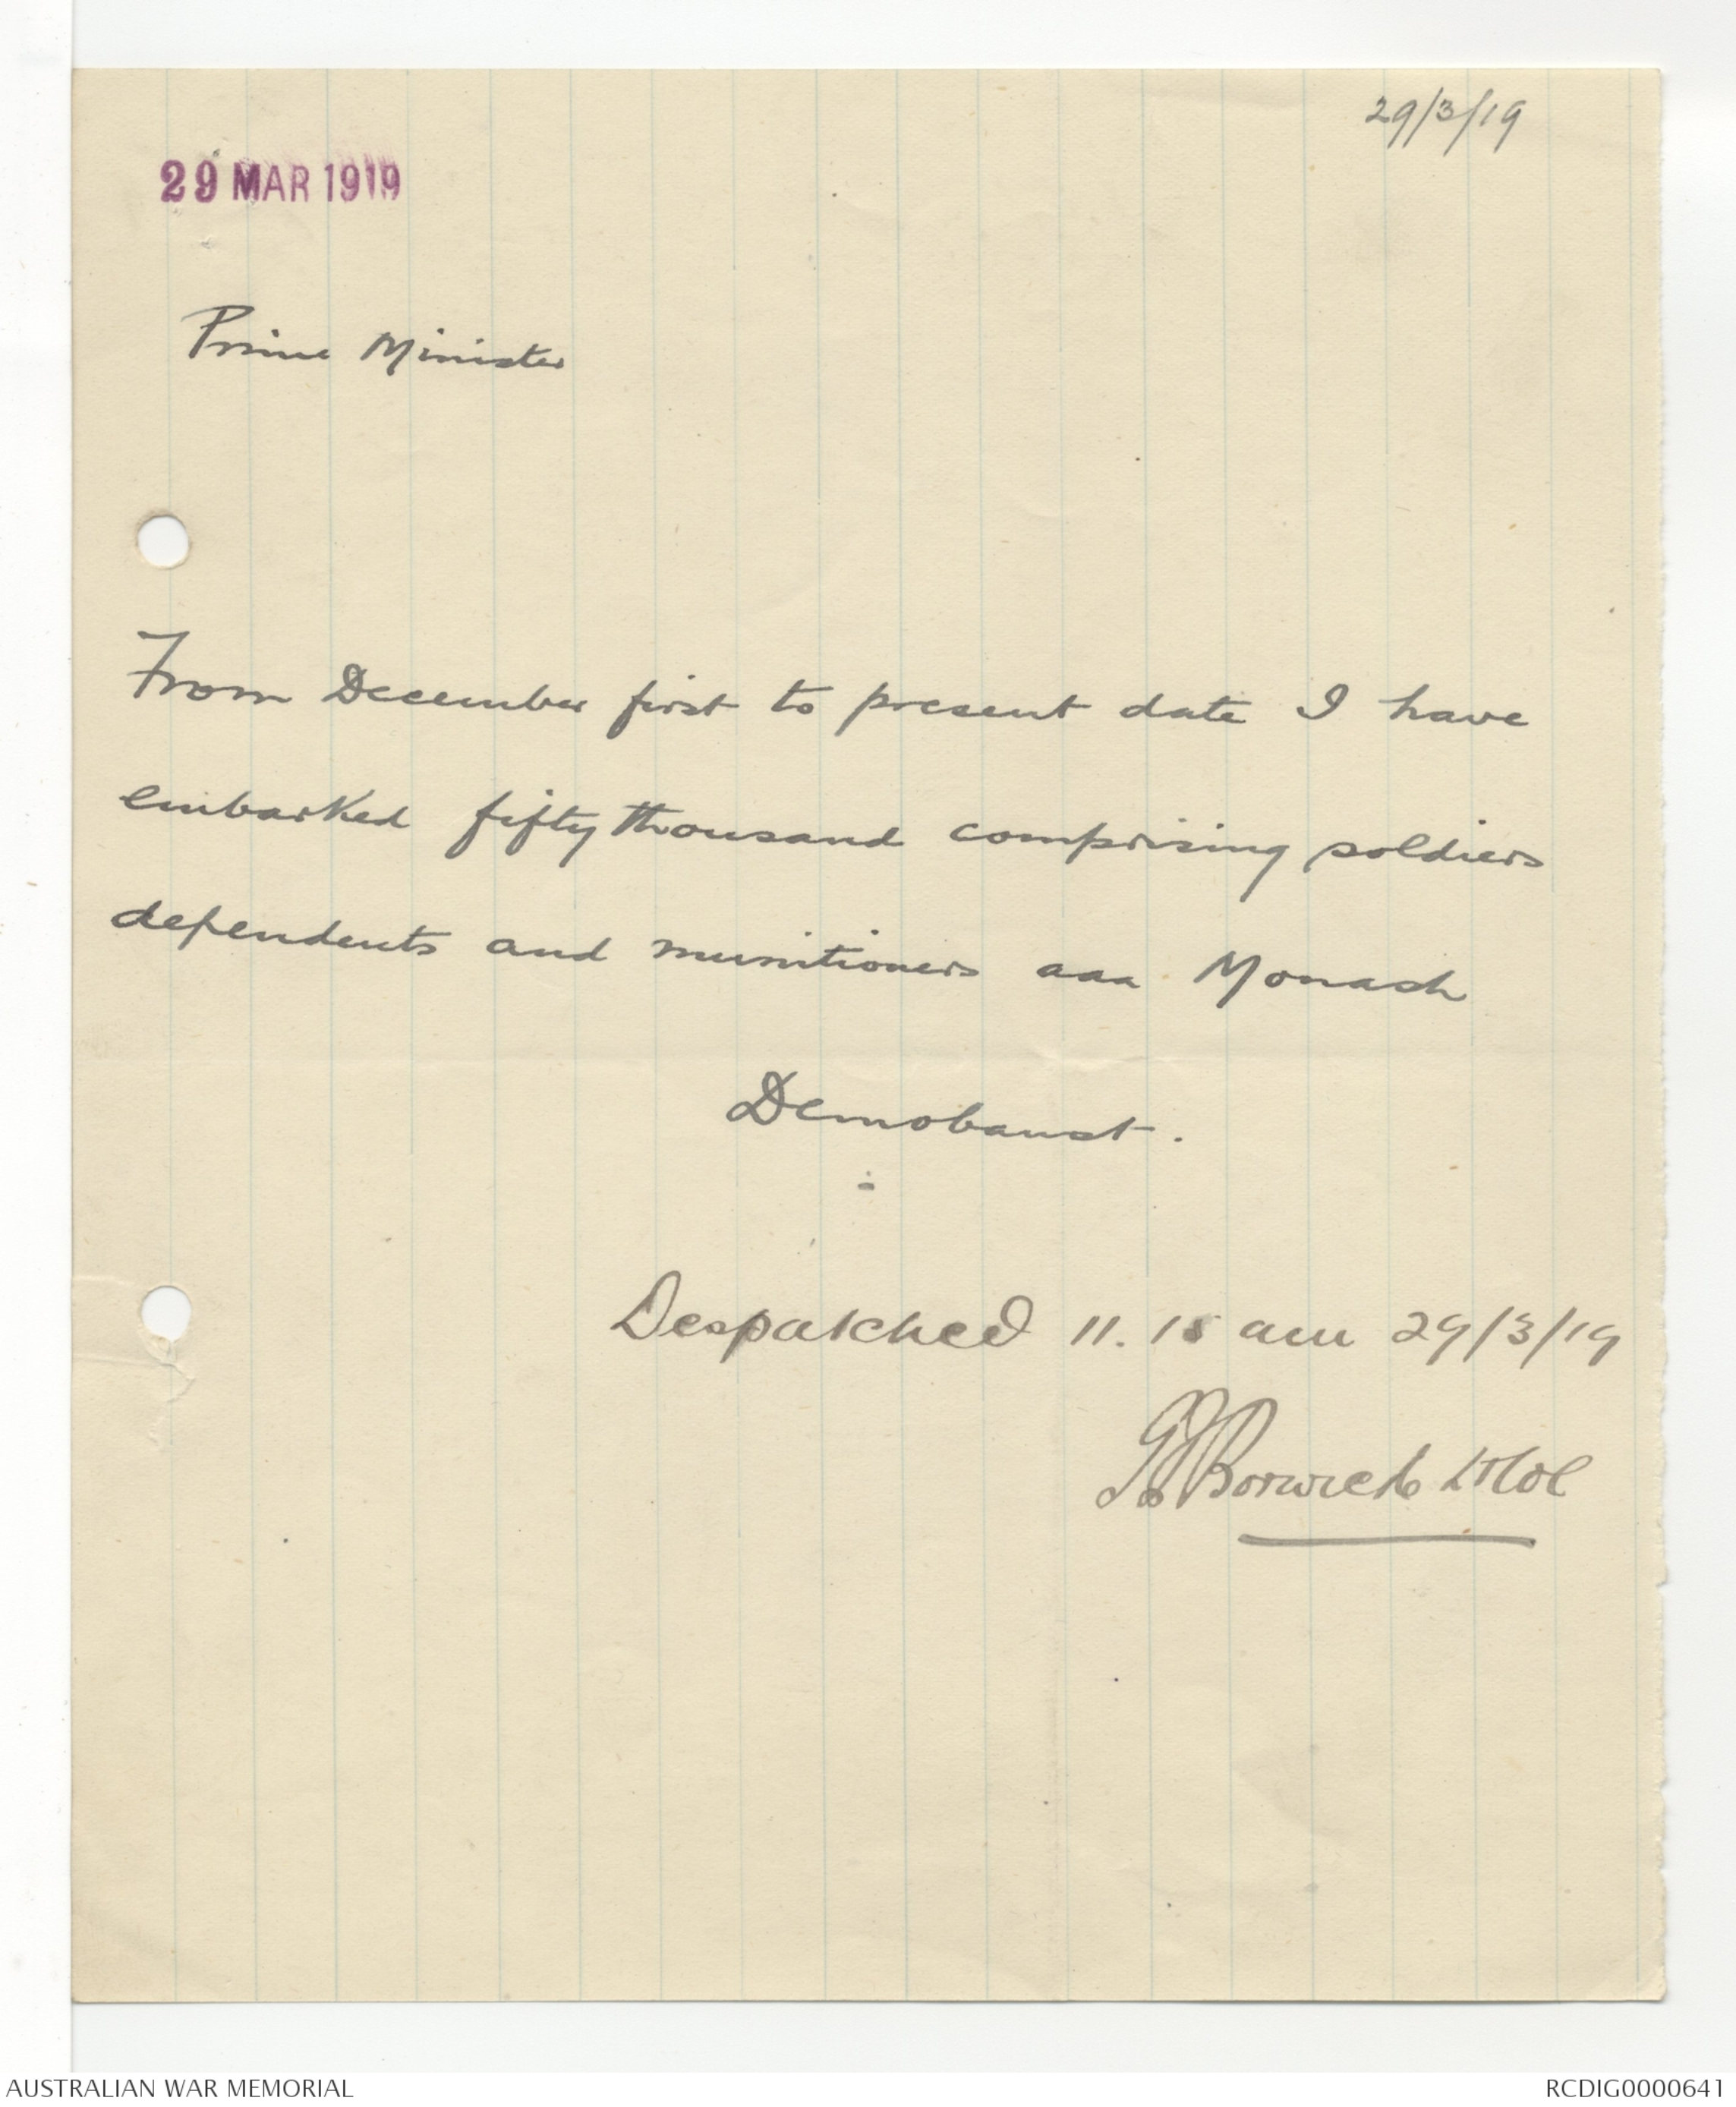 29/3/19
29 MAR 1919
Prime Minister
From December first to present date I have
embarked fifty thousand comprising soldiers
dependents and munitioners aaa Monash
Demobaust.
Despatched 11.15 am 29/3/19
Borwick Lt Col
AUSTRALIAN WAR MEMORIAL
RCDIG0000641